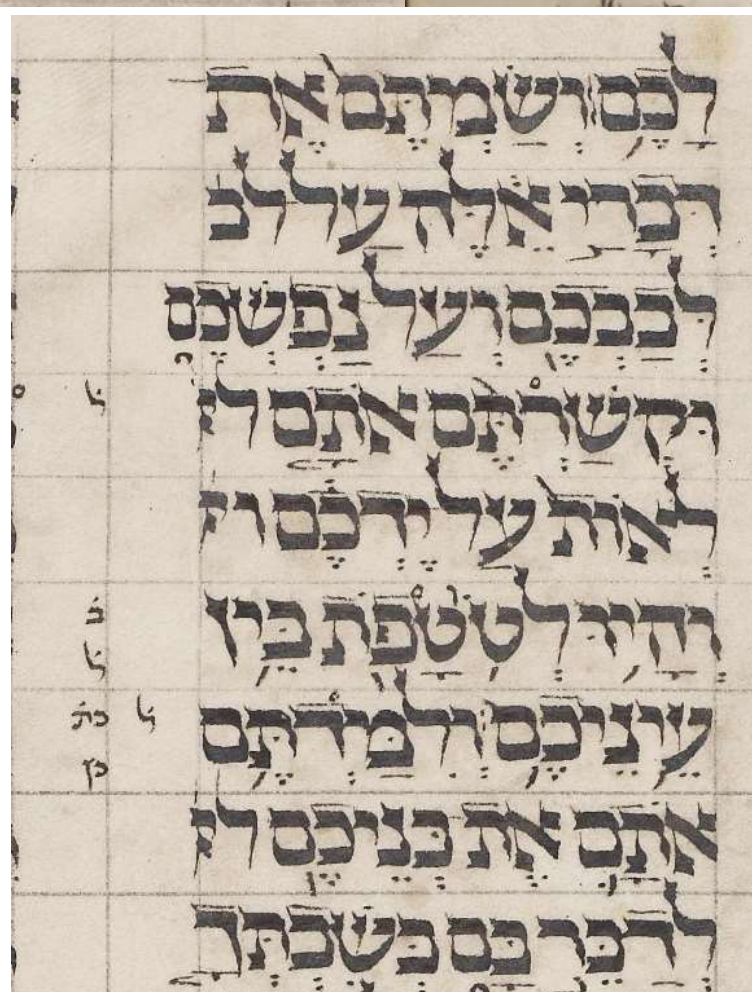 לָכֶם׃ וְשַׂמְתֶּם אֶת
דְּבָרַי אֵלֶּה עַל לב
לְבַבְכֶם וְעַל נַפְשְׁכֶם
וּקְשַׁרְתֶּם אֹתָם ל
ל
לְאוֹת עַל יֶדְכֶם ו
וְהָיוּ לְטֹטָפֹת בֵּין
ב
ל
עֵינֵיכֶם׃ וְלִמַּדְתֶּם
ל כת
כן
אֹתָם אֶת בְּנֵיכֶם ל
לְדַבֵּר בָּם בְּשִׁבְתְּךָ